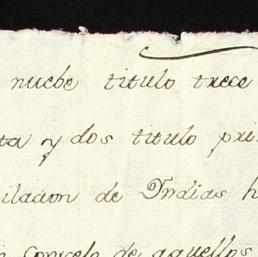 nuebe titulo trece
ta y dos titulo pri
ilacion de Indias h
n Concelo de aquellos